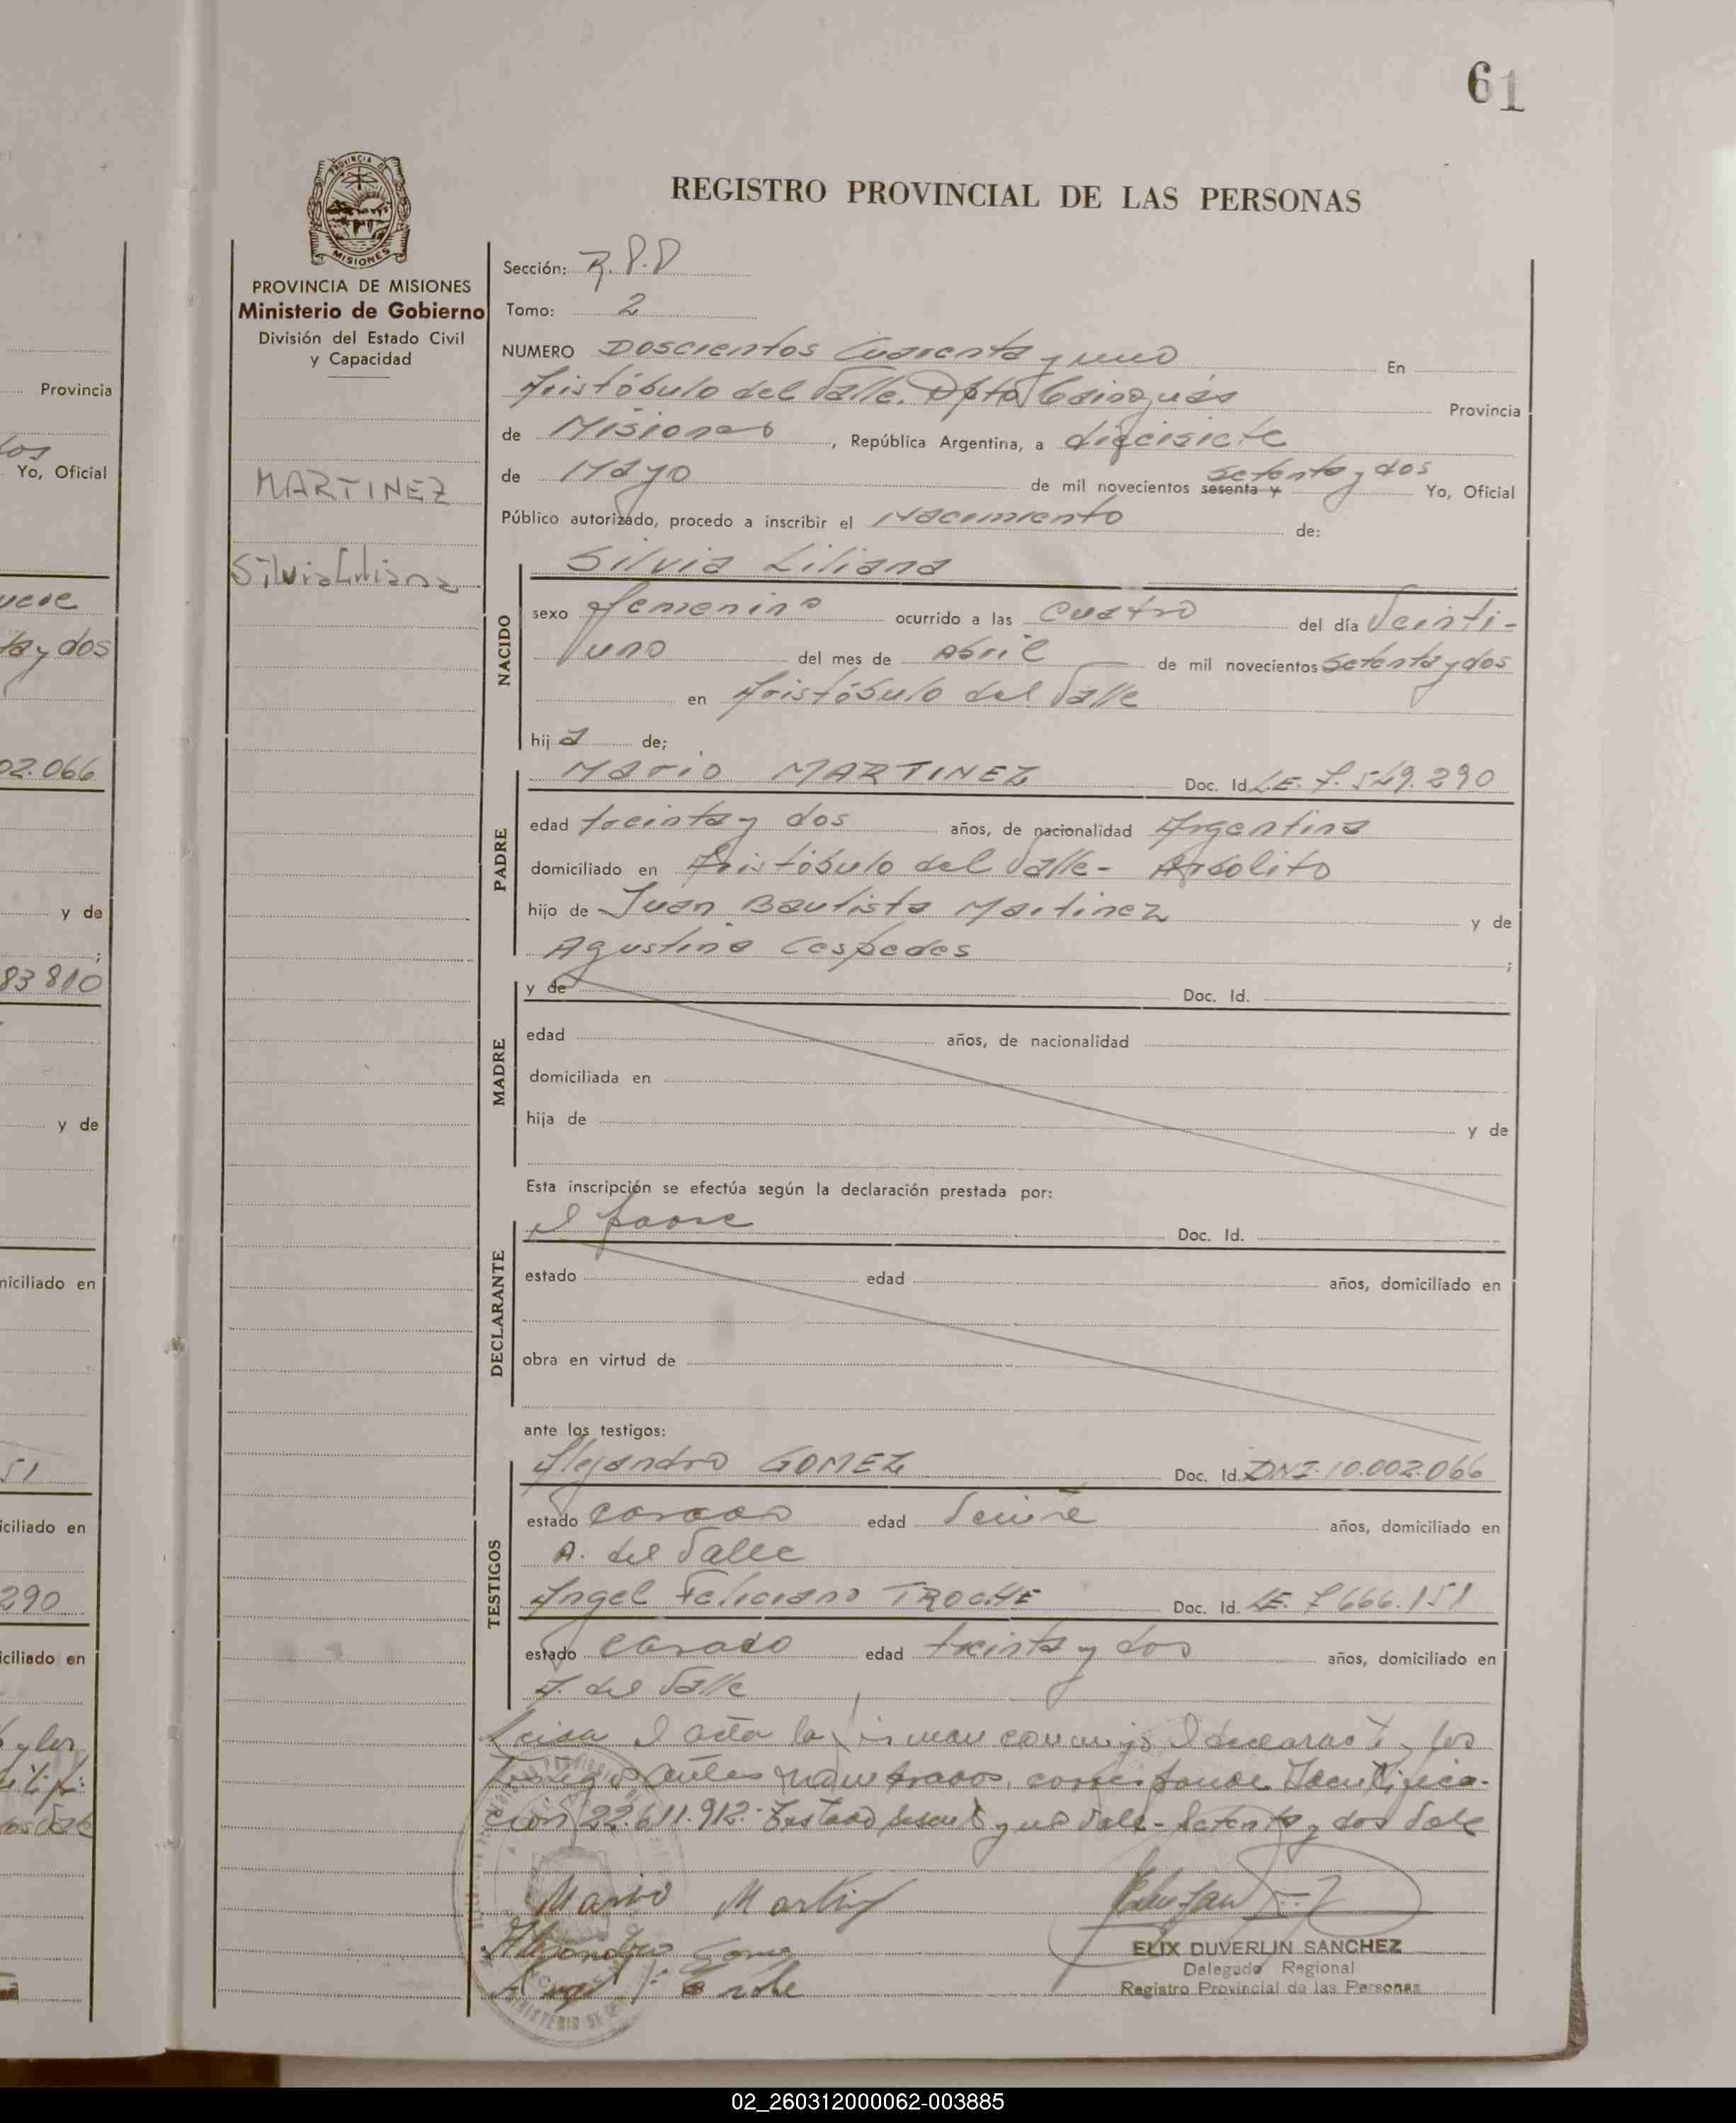 61
REGISTRO PROVINCIAL DE LAS PERSONAS
PROVINCIA DE
MISIONES
PROVINCIA DE MISIONES
Ministerio de Gobierno
División del Estado Civil
y Capacidad
MARTINEZ
Silvia Liliana
Sección: R.P.P
Tomo: 2
NUMERO Doscientos Cuarenta y uno En
Aristóbulo del Valle. Dpto Cainguás Provincia
de Misiones, República Argentina, a diecisiete
de Mayo de mil novecientos sesenta y setenta y dos Yo, Oficial
Público autorizado, procedo a inscribir el Nacimiento de:
NACIDO
Silvia Liliana
sexo femenino ocurrido a las cuatro del día Veinti-
uno del mes de Abril de mil novecientos Setenta y dos
en Aristóbulo del Valle
hija de;
PADRE
Mario MARTINEZ Doc. Id L.E. 7.549.290
edad treinta y dos años, de nacionalidad Argentina
domiciliado en Aristóbulo del Valle- Arbolito
hijo de Juan Bautista Martinez y de
Agustina Cespedes ;
MADRE
y de Doc. Id.
edad años, de nacionalidad
domiciliada en
hija de y de
Esta inscripción se efectúa según la declaración prestada por:
DECLARANTE
el padre Doc. Id.
estado edad años, domiciliado en
obra en virtud de
ante los testigos:
TESTIGOS
Alejandro GOMEZ Doc. Id. DNI. 10.002.066
estado casado edad Veinte años, domiciliado en
A. del Valle
Angel Feliciano TROCHE Doc. Id. LE. 7.666.151
estado casado edad treinta y dos años, domiciliado en
A. del Valle
Leida el acta la firman conmigo el declarante y los
Testigos antes nombrados, corresponde Identifica-
ción 22.611.912. Testado sesenta y no Vale - Setenta y dos Vale
Mario Martinez
Alejandro Gomez
ELIX DUVERLIN SANCHEZ
Delegado Regional
Registro Provincial de las Personas
Provincia
Yo, Oficial
y dos
02.066
y de
;
83810
y de
miciliado en
51
iciliado en
290
iciliado en
02_260312000062-003885